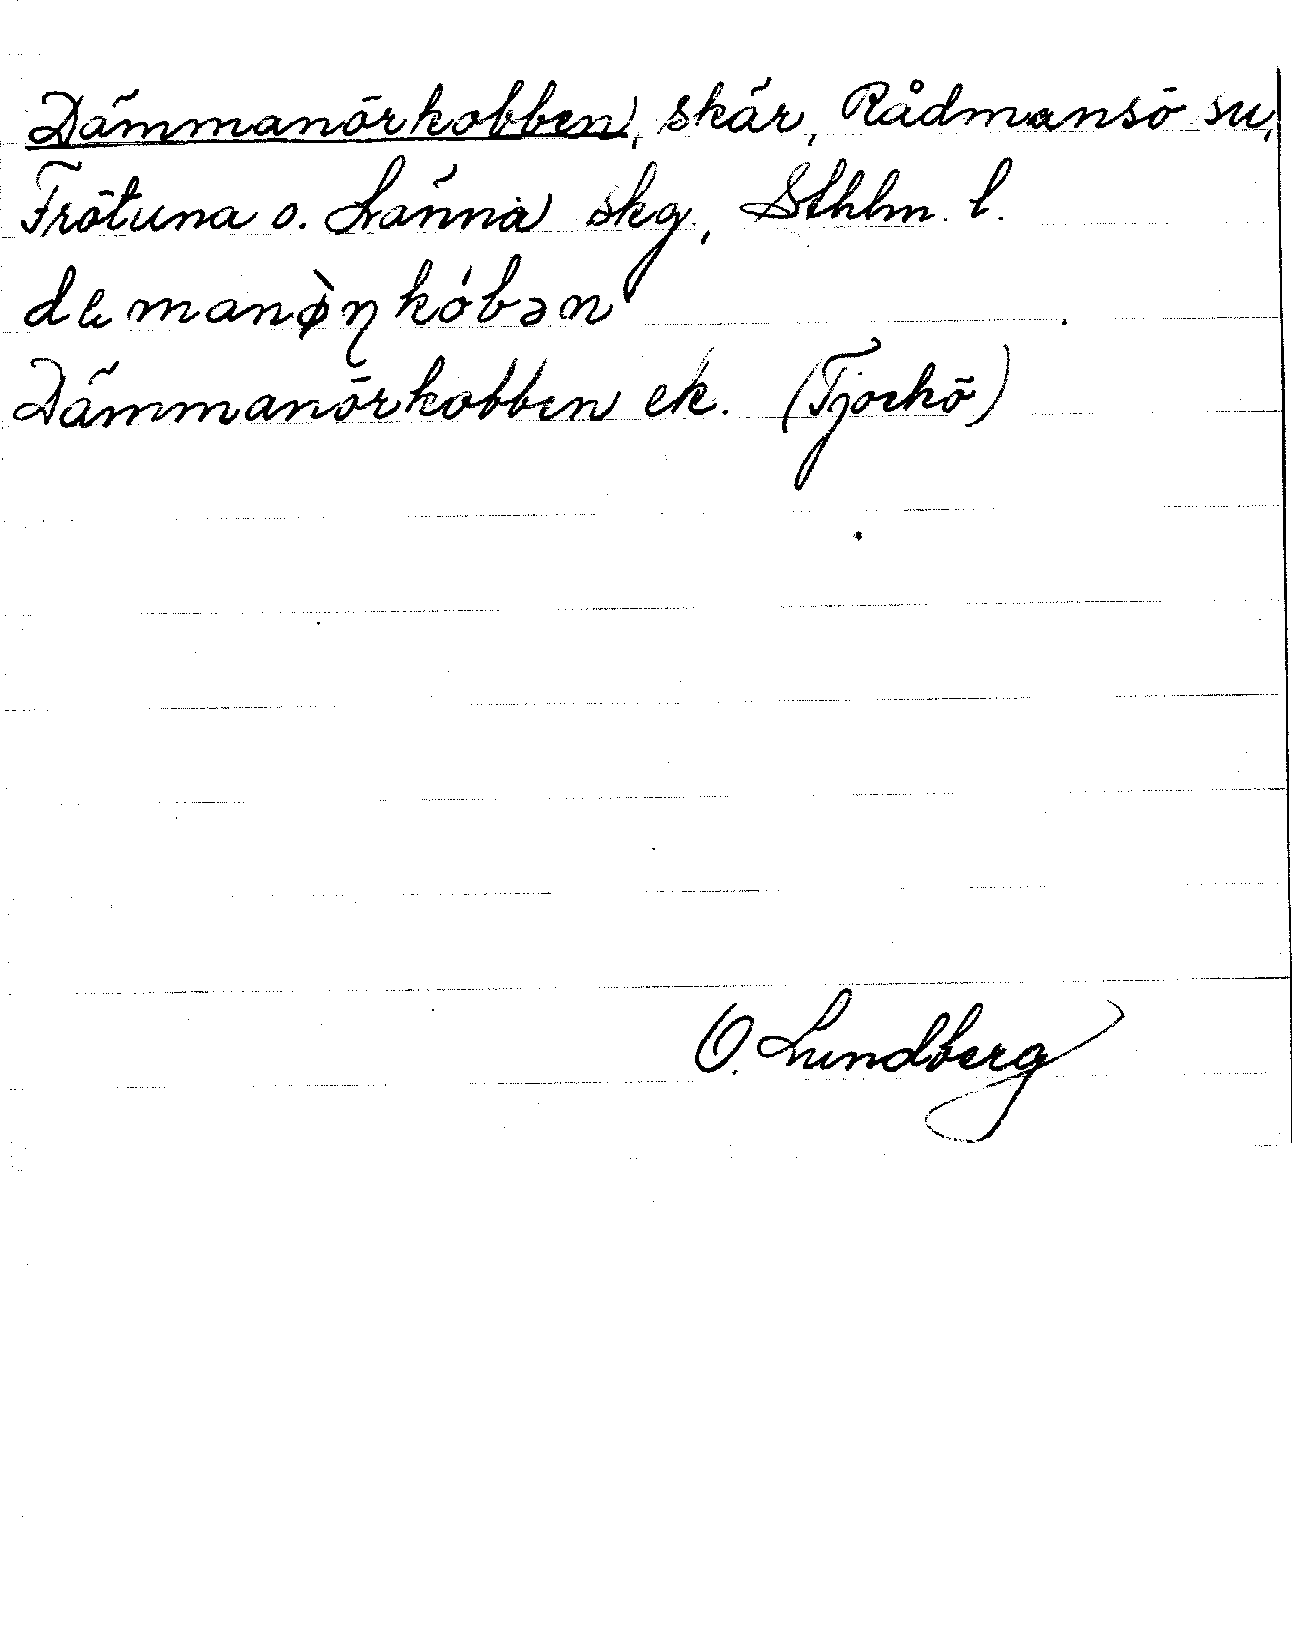 Dämmanörkobben, skär, Rådmansö sn,
Frötuna o. Länna skg, Sthlm. l.
dɛmanø̀ŋkóbən
Dämmanörkobben ek. (Tjockö)
O. Lundberg